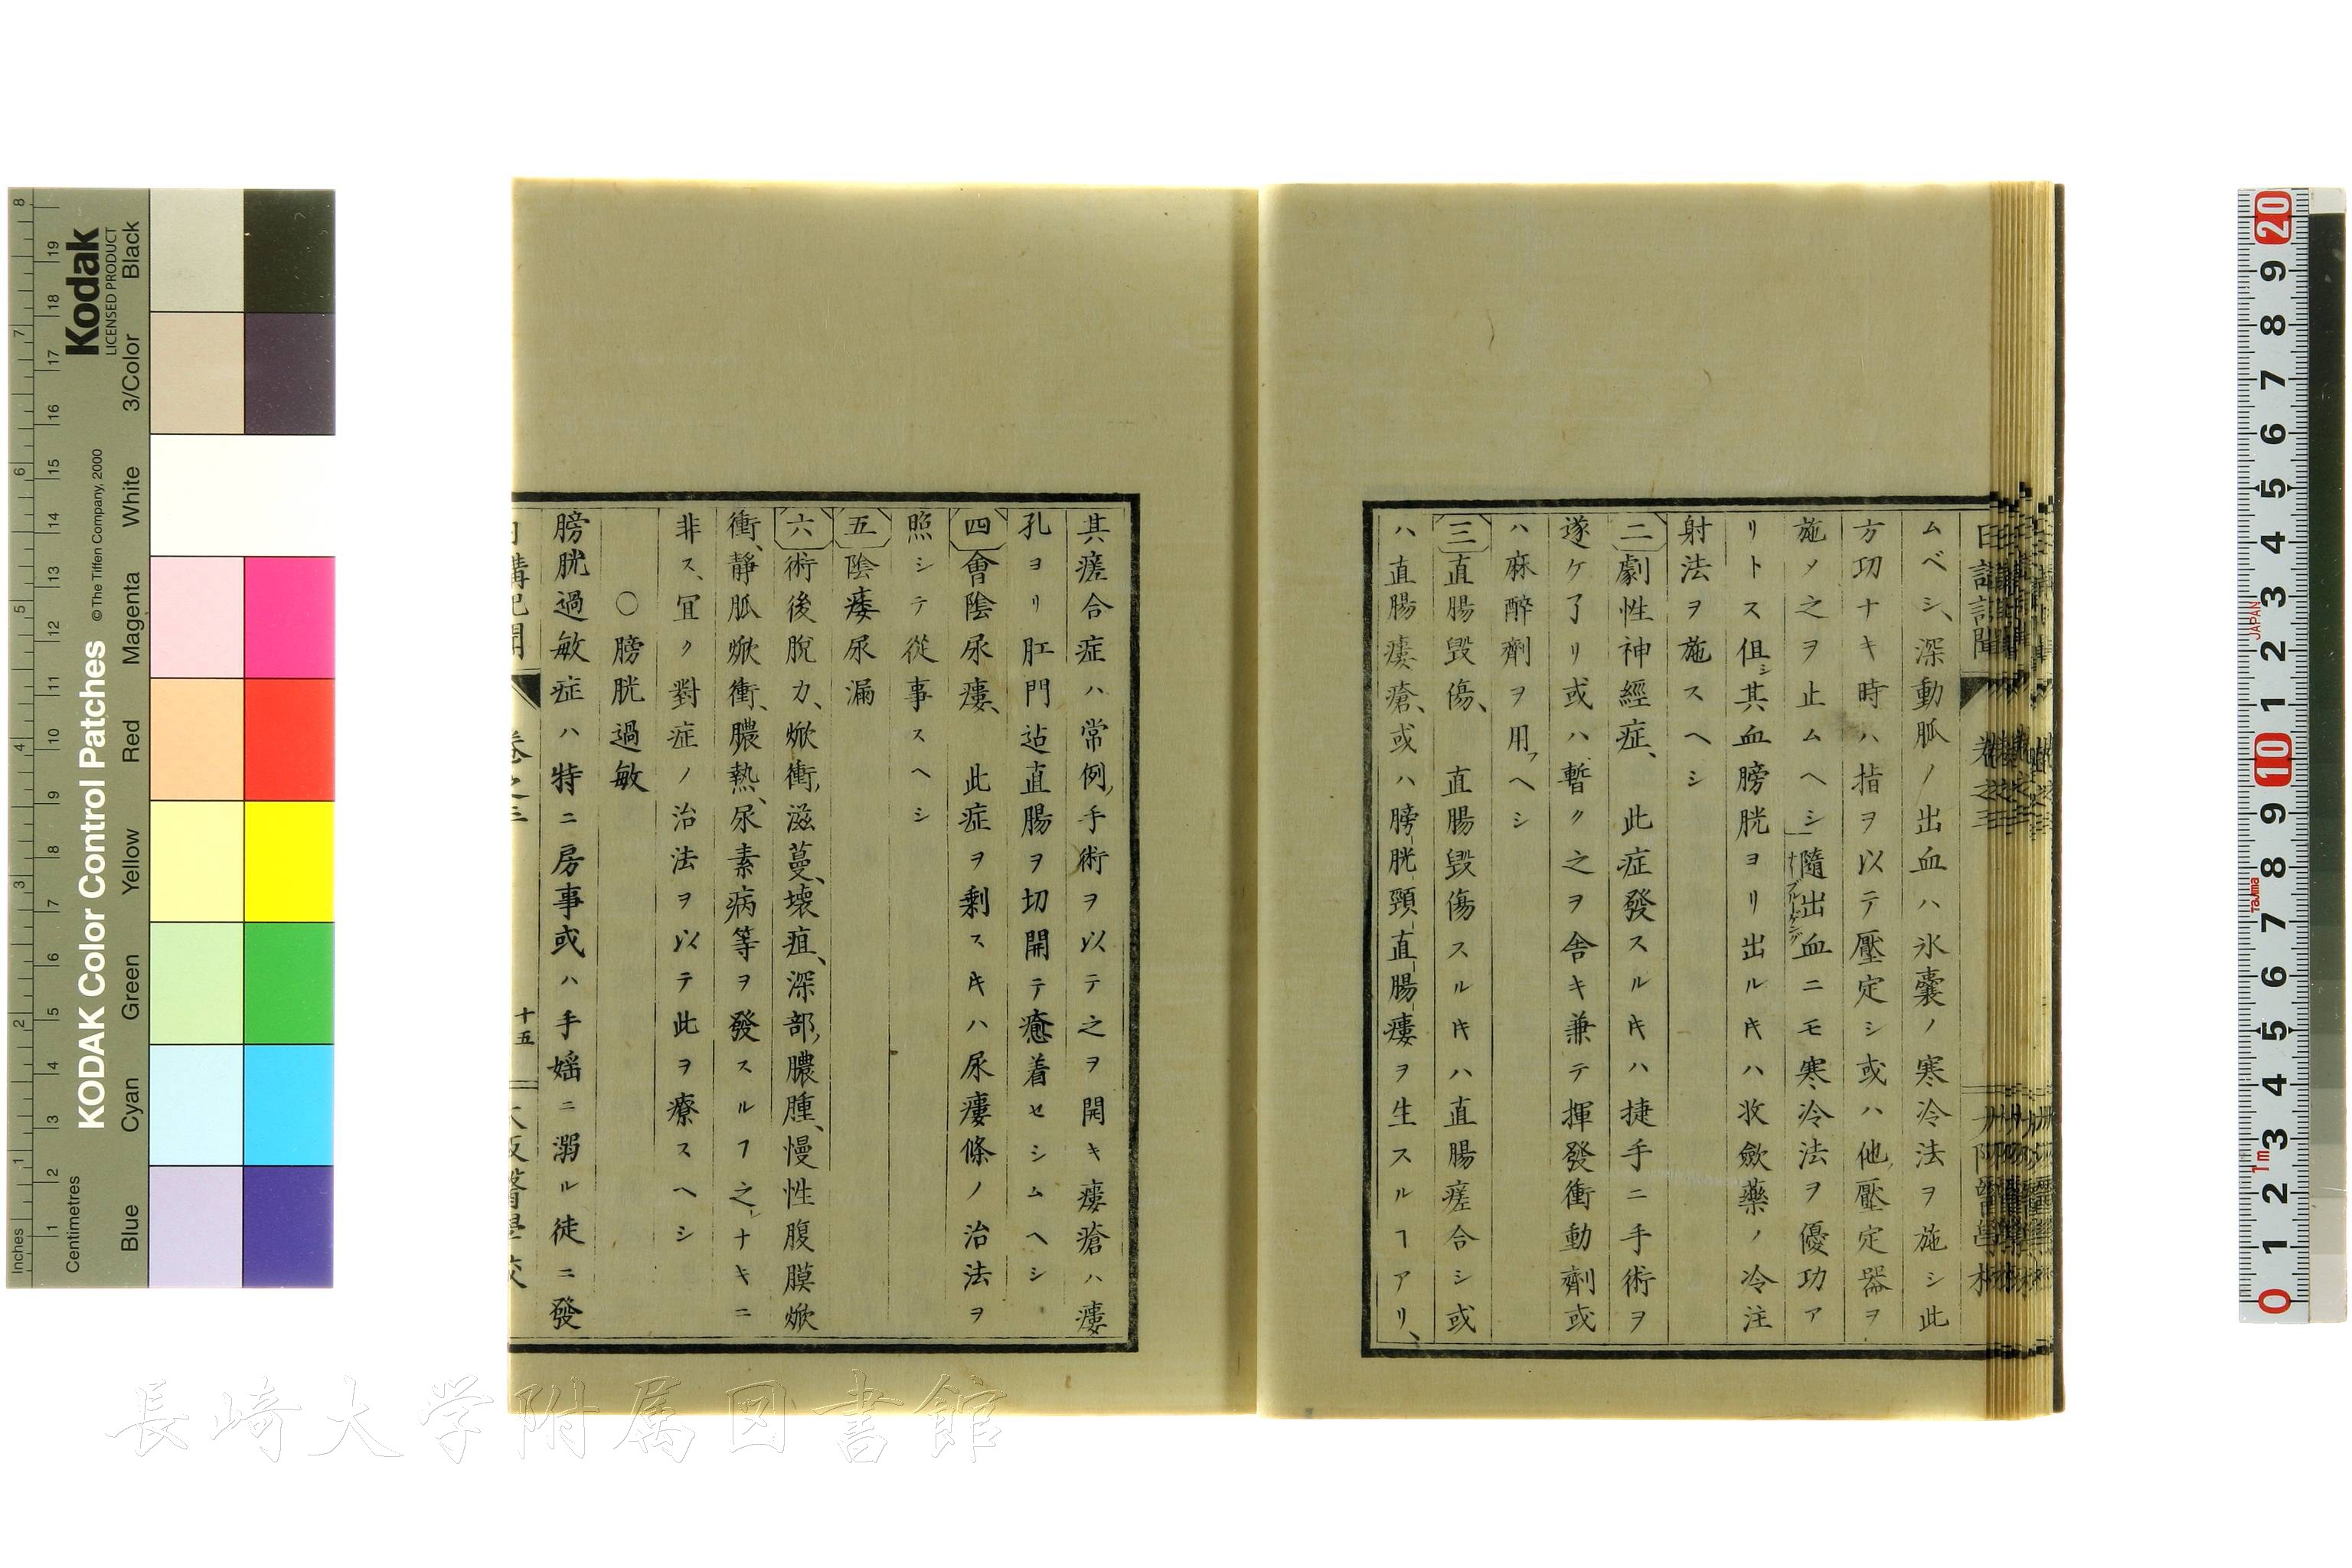 ムベシ、深動脈ノ出血ハ氷嚢ノ寒冷法ヲ施シ此
方功ナキ時ハ指ヲ以テ壓定シ或ハ他壓定器ヲ
施メ之ヲ止ムヘシ隨出血ニモ寒冷法ヲ優功ア
リトス但シ其血膀胱ヨリ出ルキハ收斂藥ノ冷注
射法ヲ施スヘシ
二劇性神經症、 此症發スルキハ捷手ニ手術ヲ
遂ケ了リ或ハ暫ク之ヲ舎キ兼テ揮發衝動劑或
ハ麻醉劑ヲ用フヘシ
三直腸毀傷、 直腸毀傷スルキハ直腸瘥合シ或
ハ直腸瘻瘡、或ハ膀胱頸直腸瘻ヲ生スルヿアリ、
其瘥合症ハ常例、手術ヲ以テ之ヲ開キ瘻瘡ハ瘻
孔ヨリ肛門迠直腸ヲ切開テ癒着セシムヘシ
四會陰尿瘻、 此症ヲ剩スキハ尿瘻條ノ治法ヲ
照シテ從事スヘシ
五陰痿尿漏
六術後脫力、焮衝、滋蔓、壞疽、深部、膿腫、慢性腹膜焮
衝、靜脈焮衝、膿熱、尿素病等ヲ發スルヿ之ナキニ
非ス、宜ク對症ノ治法ヲ以テ此ヲ療スヘシ
○膀胱過敏
膀胱過敏症ハ特ニ房事或ハ手婬ニ溺ル徒ニ發
十五
長崎大学附属図書館
KODAK Color Control Patches
© The Tiffen Company, 2000
Kodak
LICENSED PRODUCT
Inches
Centimetres
Blue
Cyan
Green
Yellow
Red
Magenta
White
3/Color
Black
JAPAN
Tajima
1m